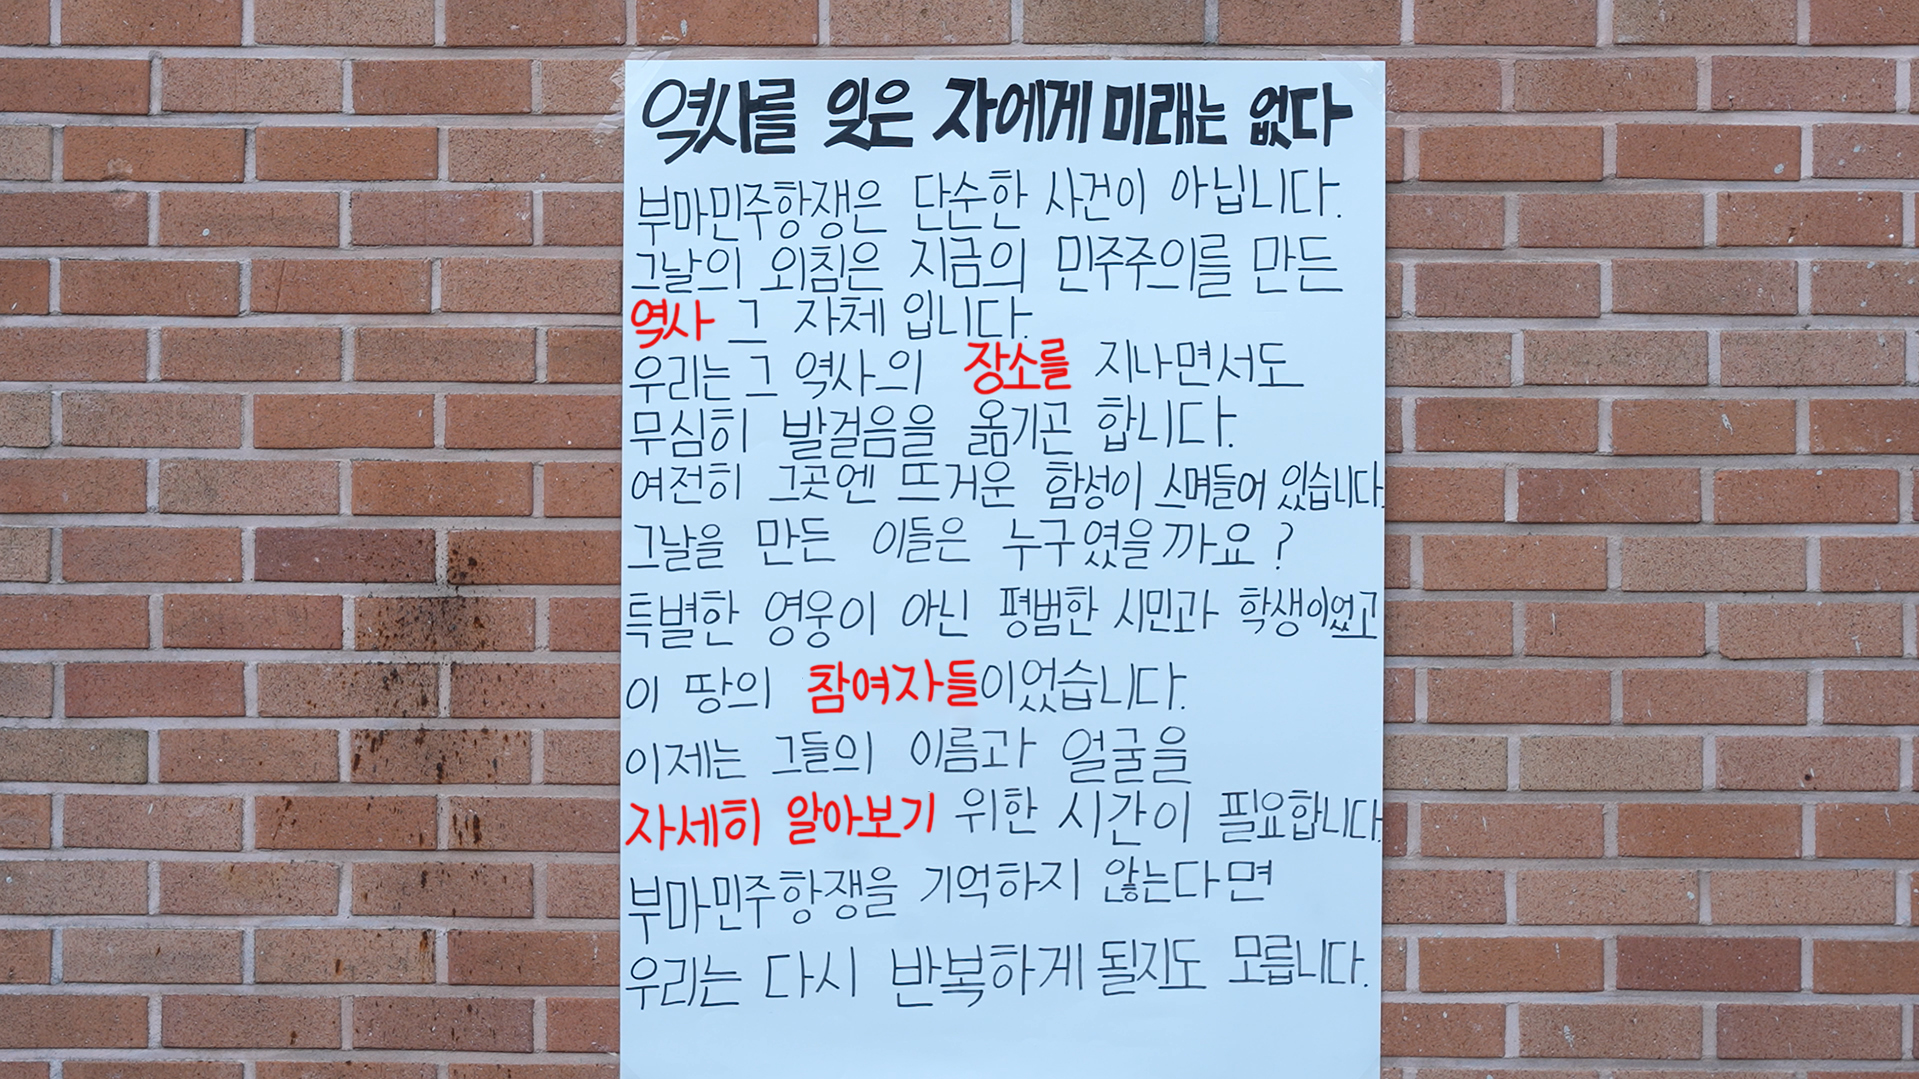 역사를 잊은 자에게 미래는 없다
부마민주항쟁은 단순한 사건이 아닙니다.
그날의 외침은 지금의 민주주의를 만든
역사 그 자체 입니다.
우리는 그 역사의 장소를 지나면서도
무심히 발걸음을 옮기곤 합니다.
여전히 그곳엔 뜨거운 함성이 스며들어 있습니다.
그날을 만든 이들은 누구였을까요?
특별한 영웅이 아닌 평범한 시민과 학생이었고
이 땅의 참여자들이었습니다.
이제는 그들의 이름과 얼굴을
자세히 알아보기 위한 시간이 필요합니다.
부마민주항쟁을 기억하지 않는다면
우리는 다시 반복하게 될지도 모릅니다.